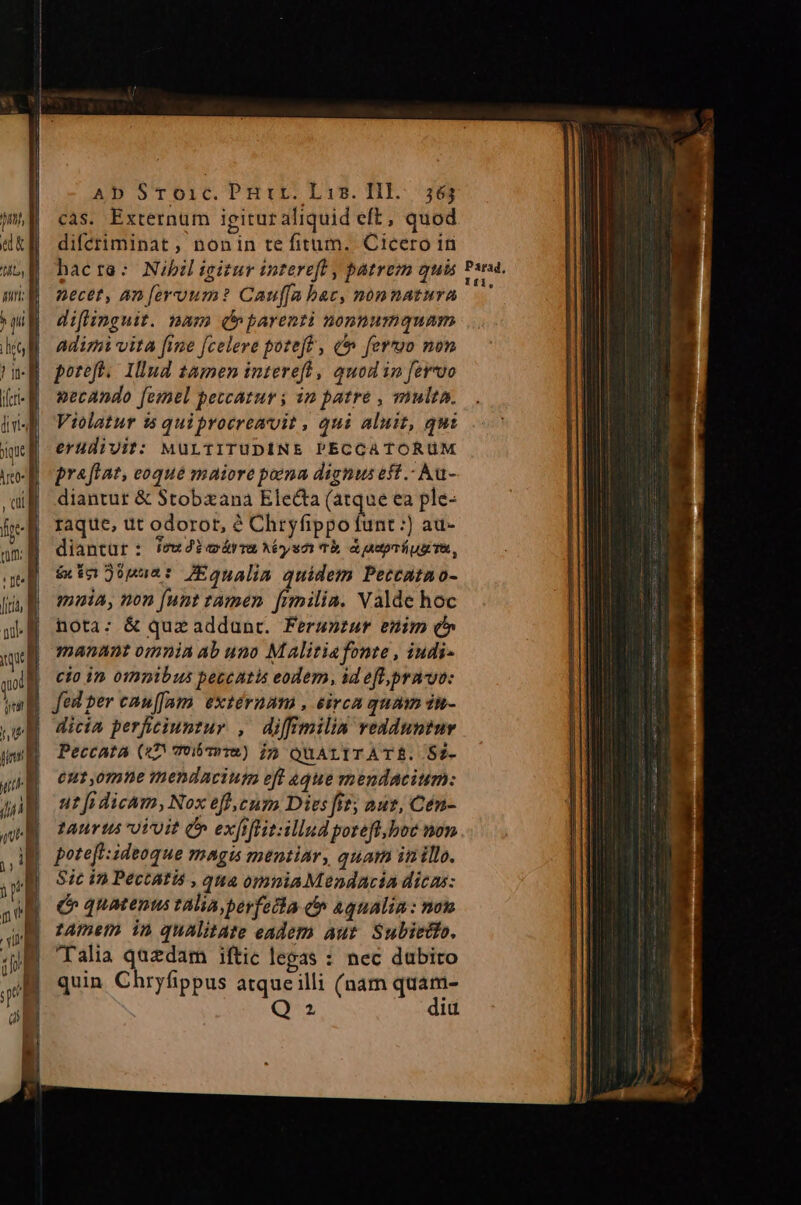 AD STOIC. PHIL. LIB. III. 363
cas. Externum igitur aliquid eſt, quod
diſcriminat, non in te ſitum. Cicero in
hac re: Nihil igitur intereſt, patrem quis
Parad.
necet, an ſervum? Cauſſa hæc, non natura
diſtinguit. nam & parenti nonnumquam
adimi vita ſine ſcelere poteſt, & ſervo non
poteſt. Illud tamen intereſt, quod in ſervo
necando ſemel peccatur; in patre, multa.
Violatur is qui procreavit, qui aluit, qui
erudivit: MULTITUDINE PECCATORUM
præſtat, eoque maiore pœna dignus eſt. Au-
diantur & Stobæana Electa (atque ea ple-
raque, ut odoror, è Chryſippo ſunt:) au-
diantur: ἴσα δὲ πάντα λέγυσι τὰ ἁμαρτήματα,
Æqualia quidem Peccata o-
mnia, non ſunt tamen ſimilia. Valde hoc
nota: & quæ addunt. Feruntur enim &
manant omnia ab uno Malitia fonte, iudi-
cio in omnibus peccatis eodem, id eſt, pravo:
ſed per cauſſam externam, circa quam iu-
dicia perficiuntur, diſſimilia redduntur
Peccata in QUALITATE. Si-
cut, omne mendacium eſt æque mendacium:
ut ſi dicam, Nox eſt, cum Dies ſit; aut, Cen-
taurus vivit & exſiſtit: illud poteſt, hoc non
poteſt: ideoque magis mentiar, quam in illo.
Sic in Peccatis, qua omnia Mendacia dicas:
& quatenus talia, perfecta & æqualia: non
tamem in qualitate eadem aut Subiecto.
Talia quædam iſtic legas: nec dubito
quin Chryſippus atque illi (nam quam-
Q 2 diu